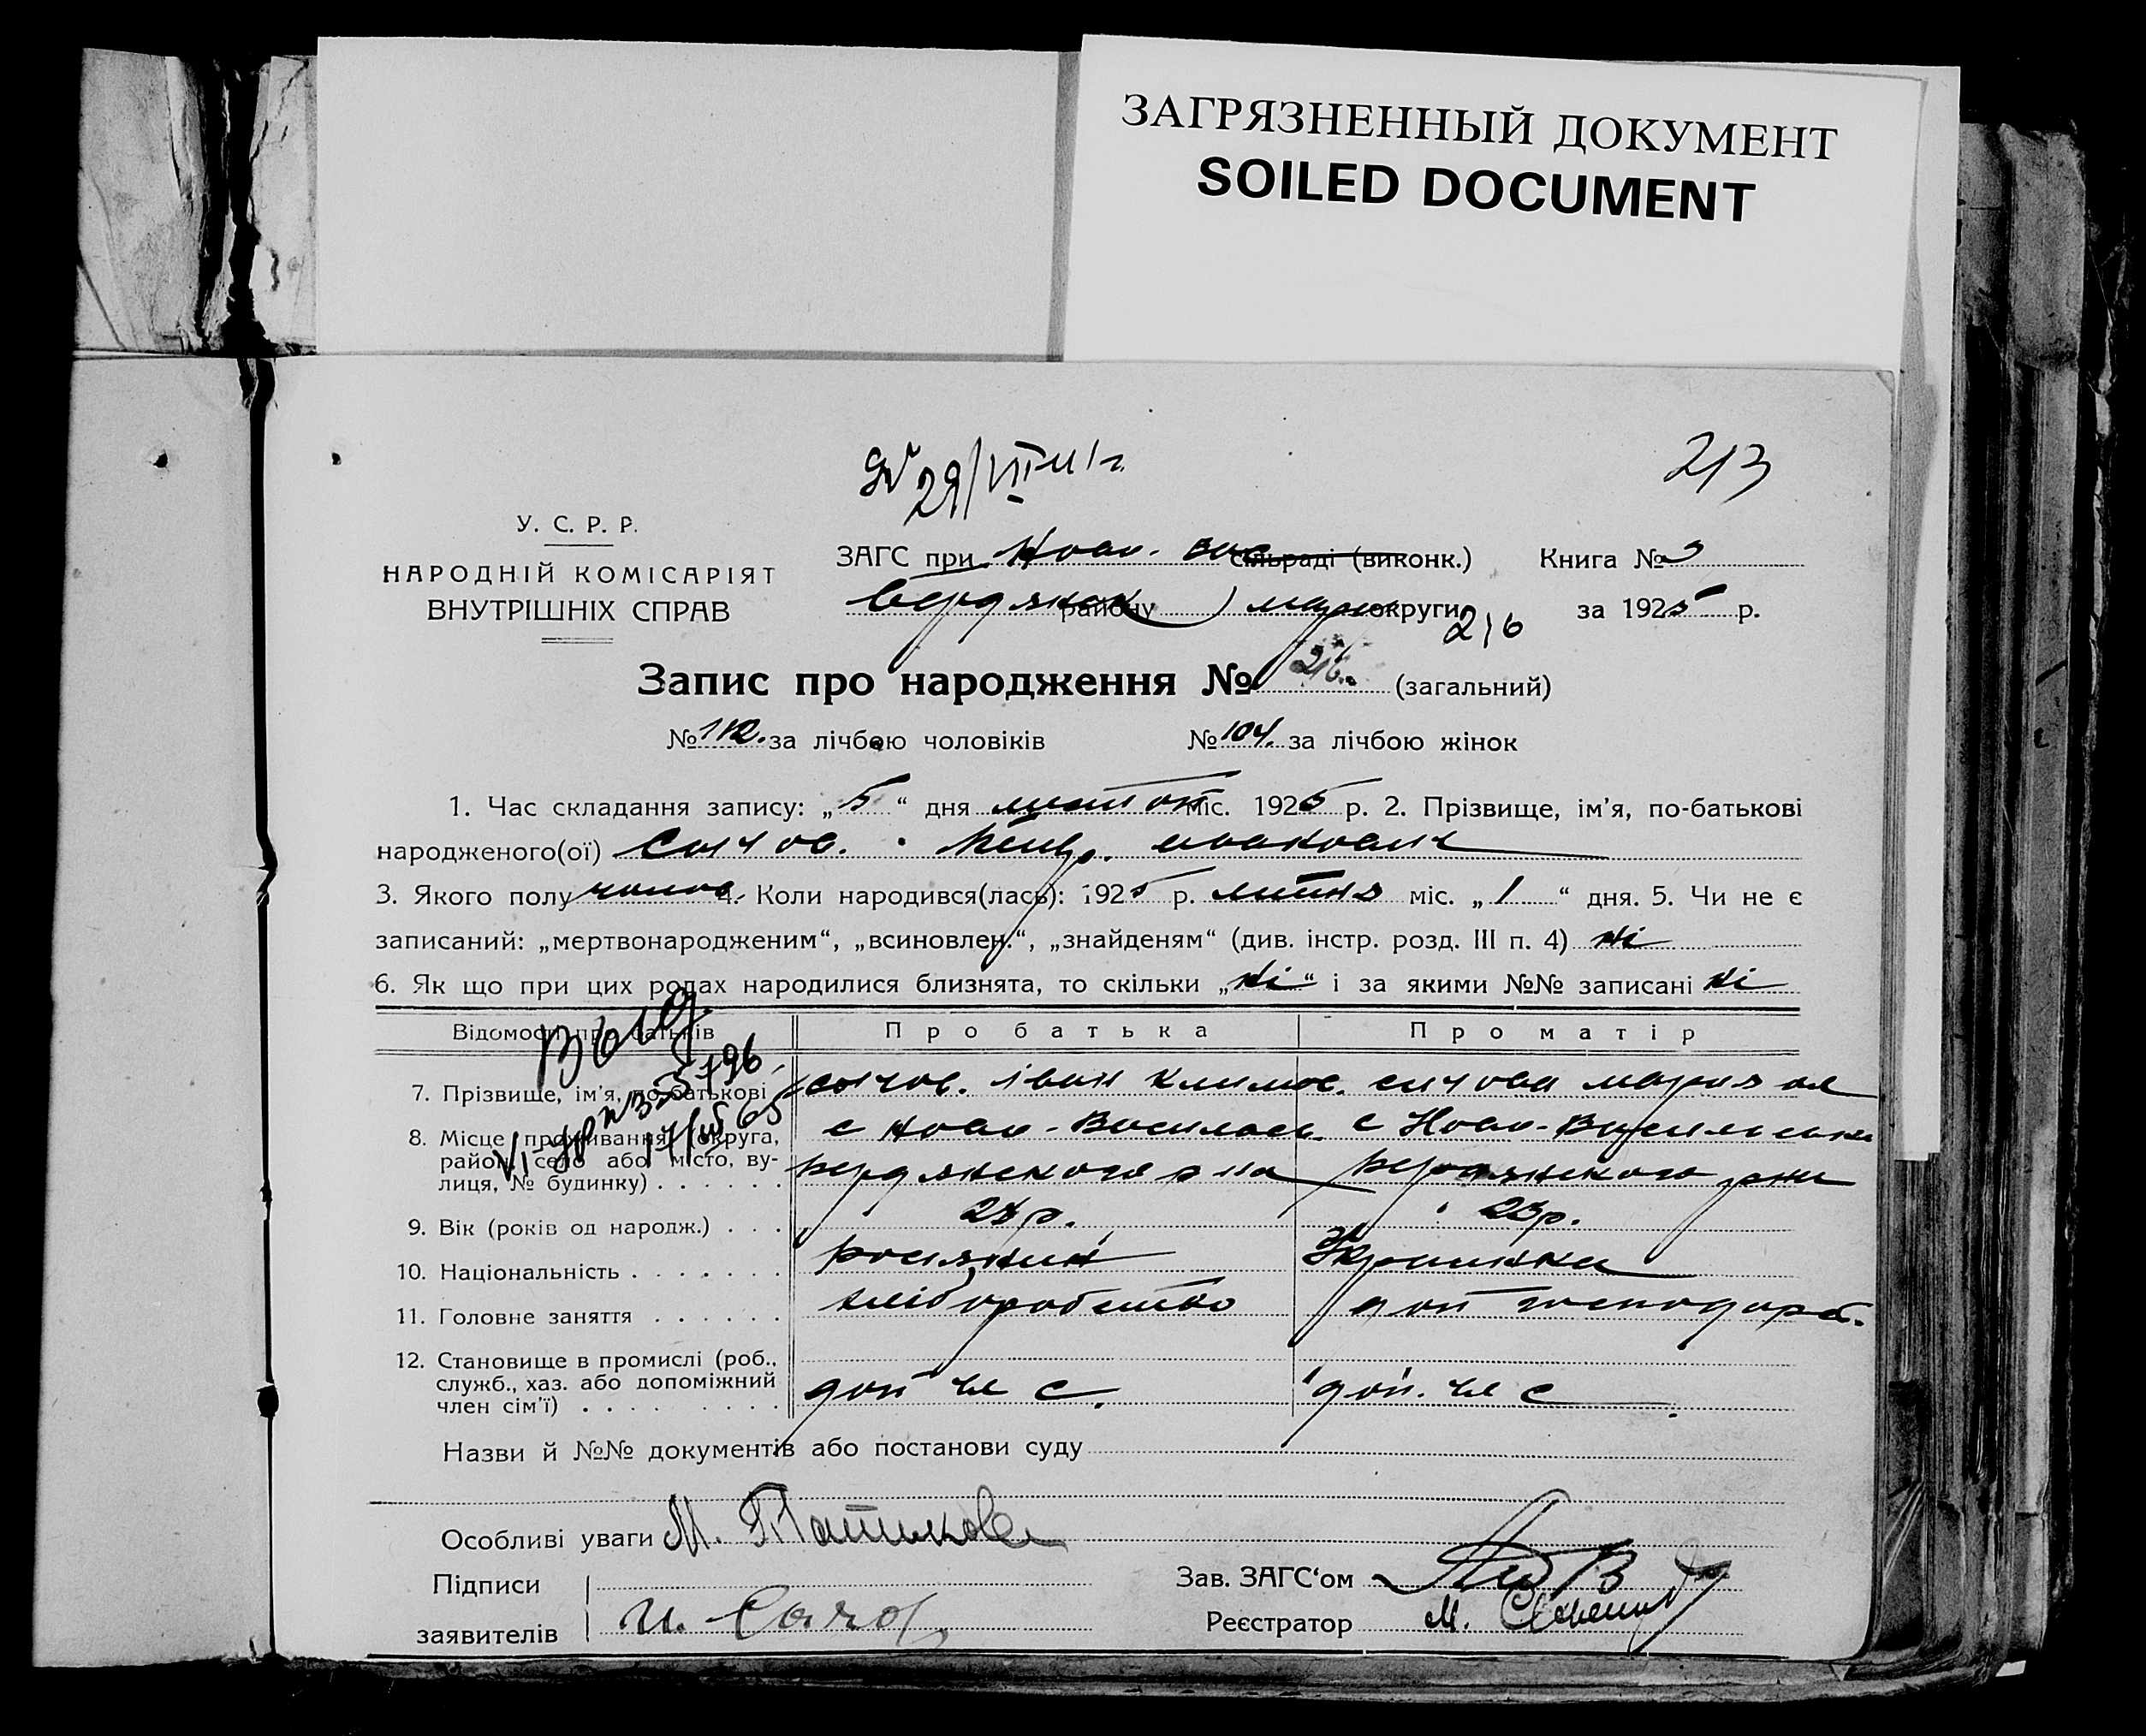 ЗАГРЯЗНЕННЫЙ ДОКУМЕНТ
SOILED DOCUMENT
29/VIII
213
У. С. Р. Р.
НАРОДНІЙ КОМІСАРІЯТ
ВНУТРІШНІХ СПРАВ
ЗАГС при Ново-Вас сільраді (виконк.) Книга № 3
Бердянск району мар округи за 1925 р.
216
Запис про народження № 216 (загальний)
№ 112. за лічбою чоловіків № 104. за лічбою жінок
1. Час складання запису: „5“ дня міс. 1925 р. 2. Прізвище, ім’я, по-батькові
народженого(ої) Сычов. Петр.
3. Якого полу чолов. 4. Коли народився(лась): 1925 р. липня міс. „1“ дня. 5. Чи не є
записаний: „мертвонародженим“, „всиновлен.“, „знайденям“ (див. інстр. розд. III п. 4) ні
6. Як що при цих родах народилися близнята, то скільки „ні“ і за якими №№ записані ні
Відомости про батьків Про батька Про матір
Выд.
7. Прізвище, ім’я, по-батькові Сычов. Іван Климов. Сичова Мария
8. Місце проживання (округа, район, село або місто, вулиця, № будинку) с Ново-Василье. Бердянского р на с Ново-Васильевка Бердянского рна
17/III 65
9. Вік (років од народж.) 23р.
10. Національність росіянин Украинка
11. Головне заняття хліборобство дом господарст.
12. Становище в промислі (роб., служб., хаз. або допоміжний член сім’ї) доп чл с. доп. чл с.
Назви й №№ документів або постанови суду
Особливі уваги М.
Підписи заявителів И. Сычов
Зав. ЗАГС‘ом
Реєстратор М.